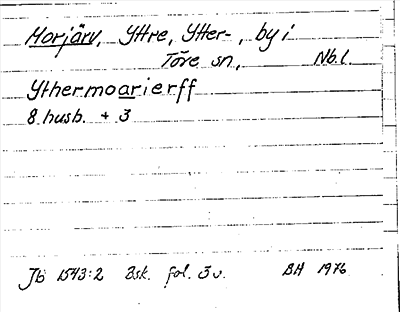 Morjärv, Yttre, Ytter-, by i
Töre sn, Nb.l.
Ythermoarierff
8 husb. + 3
Jb 1543:2 Bsk. fol. 3v. BH 1976